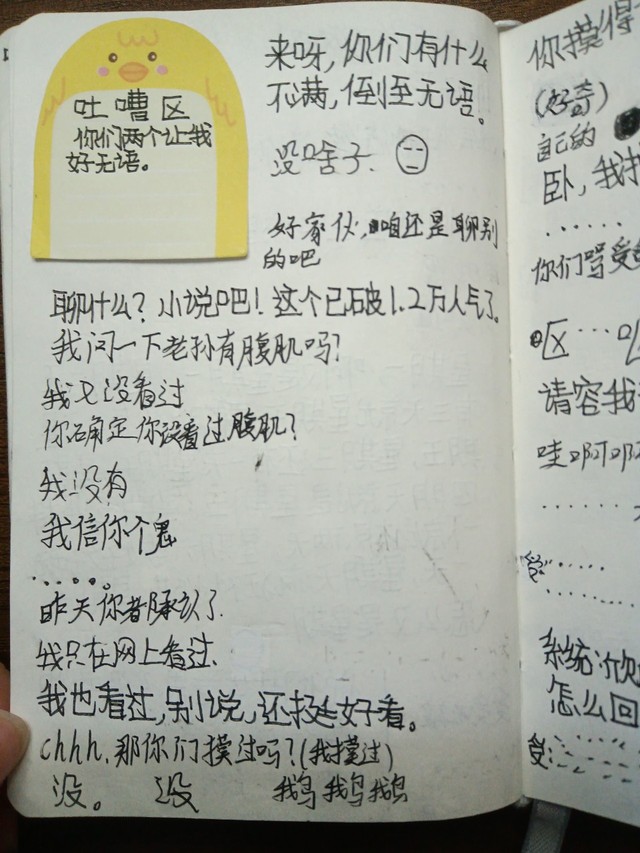 吐嘈区
你们两个让我
好无语。
来呀,你们有什么
不满,倒至无语。
没啥子.
好家伙,咱还是聊别
的吧
聊什么?小说吧!这个已破1.2万人气了。
我问一下老孙有腹肌吗?
我又没看过
你确定你没看过腹肌?
我没有
我信你个鬼
......
昨天你都承认了.
我只在网上看过.
我也看过,别说,还挺好看。
chhh,那你们摸过吗?(我摸过)
没。 没 鹅鹅鹅
你摸得
(好奇)
自己的
卧,我
......
你们
区...
请容我
哇啊啊
......
受:......
......
系统:欣
怎么回
受: